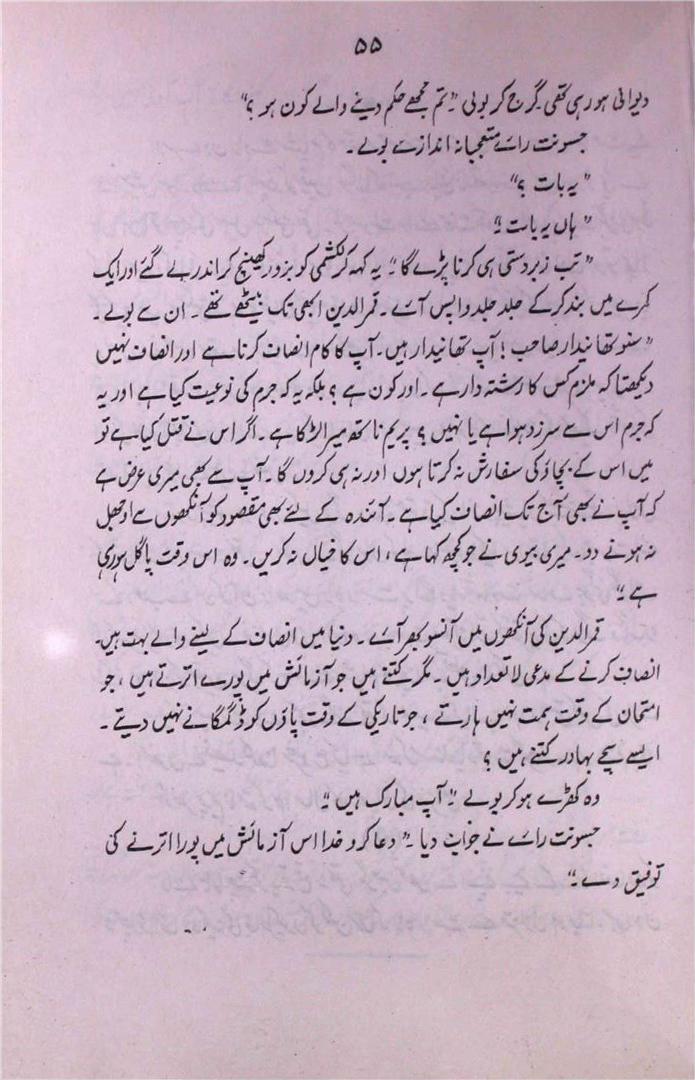 ۵۵
دیوانی ہو رہی تھی گرج کر بولی "تم مجھے حکم دینے والے کون ہو ؟"
جسونت رائے متعجبانہ انداز سے بولے ۔
"یہ بات ؟"
"ہاں یہ بات"
"تب زبردستی ہی کرنا پڑے گا" یہ کہہ کر لکشمی کو بزور کھینچ کر اندر لے گئے اور ایک
کمرے میں بند کرکے جلد جلد واپس آئے ۔ قمرالدین ابھی تک بیٹھے تھے ۔ ان سے بولے ۔
"سنو تھانیدار صاحب ! آپ تھانیدار ہیں ۔ آپ کا کام انصاف کرنا ہے اور انصاف نہیں
دیکھتا کہ ملزم کس کا رشتہ دار ہے ۔ اور کون ہے ؟ بلکہ یہ کہ جرم کی نوعیت کیا ہے اور یہ
کہ جرم اس سے سرزد ہوا ہے یا نہیں ؟ پریم ناتھ میرا لڑکا ہے ۔ اگر اس نے قتل کیا ہے تو
میں اس کے بچاؤ کی سفارش نہ کرتا ہوں اور نہ ہی کروں گا ۔ آپ سے بھی میری عرض ہے
کہ آپ نے بھی آج تک انصاف کیا ہے ۔ آئندہ کے لئے بھی مقصود کو آنکھوں سے اوجھل
نہ ہونے دو ۔ میری بیوی نے جو کچھ کہا ہے ، اس کا خیال نہ کریں ۔ وہ اس وقت پاگل ہو رہی
ہے"
قمرالدین کی آنکھوں میں آنسو بھر آئے ۔ دنیا میں انصاف کے لینے والے بہت ہیں ۔
انصاف کرنے کے مدعی لاتعداد ہیں ۔ مگر کتنے ہیں جو آزمائش میں پورے اترتے ہیں ، جو
امتحان کے وقت ہمت نہیں ہارتے ، جو تاریکی کے وقت پاؤں کو ڈگمگانے نہیں دیتے ۔
ایسے سچے بہادر کتنے ہیں ؟
وہ کھڑے ہو کر بولے "آپ مبارک ہیں"
جسونت رائے نے جواب دیا ۔ "دعا کرو خدا اس آزمائش میں پورا اترنے کی
توفیق دے ۔"